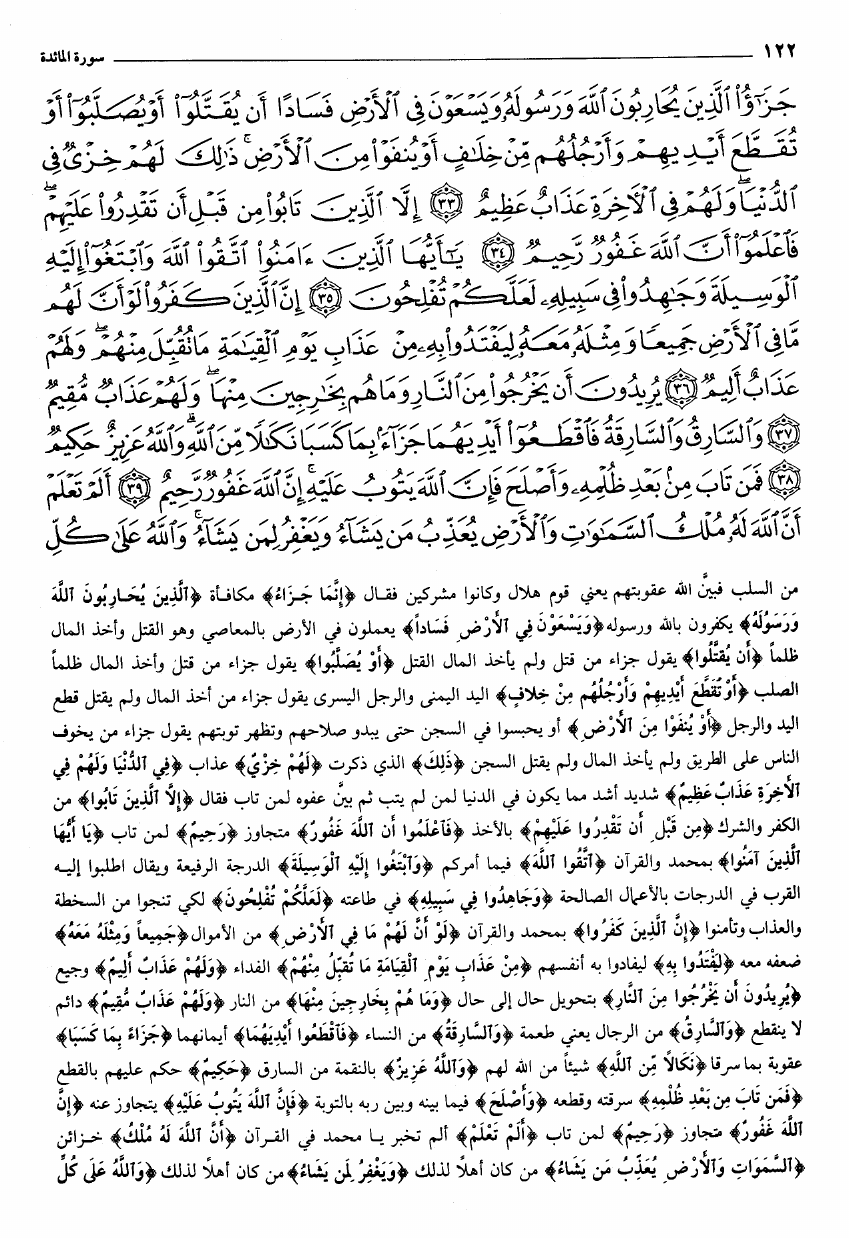 ١٢٢ سورة المائدة
جَزَٰٓؤُا۟ ٱلَّذِينَ يُحَارِبُونَ ٱللَّهَ وَرَسُولَهُۥ وَيَسْعَوْنَ فِى ٱلْأَرْضِ فَسَادًا أَن يُقَتَّلُوٓا۟ أَوْ يُصَلَّبُوٓا۟ أَوْ
تُقَطَّعَ أَيْدِيهِمْ وَأَرْجُلُهُم مِّنْ خِلَٰفٍ أَوْ يُنفَوْا۟ مِنَ ٱلْأَرْضِ ۚ ذَٰلِكَ لَهُمْ خِزْىٌ فِى
ٱلدُّنْيَا ۖ وَلَهُمْ فِى ٱلْءَاخِرَةِ عَذَابٌ عَظِيمٌ ٣٣ إِلَّا ٱلَّذِينَ تَابُوا۟ مِن قَبْلِ أَن تَقْدِرُوا۟ عَلَيْهِمْ ۖ
فَٱعْلَمُوٓا۟ أَنَّ ٱللَّهَ غَفُورٌ رَّحِيمٌ ٣٤ يَٰٓأَيُّهَا ٱلَّذِينَ ءَامَنُوا۟ ٱتَّقُوا۟ ٱللَّهَ وَٱبْتَغُوٓا۟ إِلَيْهِ
ٱلْوَسِيلَةَ وَجَٰهِدُوا۟ فِى سَبِيلِهِۦ لَعَلَّكُمْ تُفْلِحُونَ ٣٥ إِنَّ ٱلَّذِينَ كَفَرُوا۟ لَوْ أَنَّ لَهُم
مَّا فِى ٱلْأَرْضِ جَمِيعًا وَمِثْلَهُۥ مَعَهُۥ لِيَفْتَدُوا۟ بِهِۦ مِنْ عَذَابِ يَوْمِ ٱلْقِيَٰمَةِ مَا تُقُبِّلَ مِنْهُمْ ۖ وَلَهُمْ
عَذَابٌ أَلِيمٌ ٣٦ يُرِيدُونَ أَن يَخْرُجُوا۟ مِنَ ٱلنَّارِ وَمَا هُم بِخَٰرِجِينَ مِنْهَا ۖ وَلَهُمْ عَذَابٌ مُّقِيمٌ
٣٧ وَٱلسَّارِقُ وَٱلسَّارِقَةُ فَٱقْطَعُوٓا۟ أَيْدِيَهُمَا جَزَآءًۢ بِمَا كَسَبَا نَكَٰلًا مِّنَ ٱللَّهِ ۗ وَٱللَّهُ عَزِيزٌ حَكِيمٌ
٣٨ فَمَن تَابَ مِنۢ بَعْدِ ظُلْمِهِۦ وَأَصْلَحَ فَإِنَّ ٱللَّهَ يَتُوبُ عَلَيْهِ ۗ إِنَّ ٱللَّهَ غَفُورٌ رَّحِيمٌ ٣٩ أَلَمْ تَعْلَمْ
أَنَّ ٱللَّهَ لَهُۥ مُلْكُ ٱلسَّمَٰوَٰتِ وَٱلْأَرْضِ يُعَذِّبُ مَن يَشَآءُ وَيَغْفِرُ لِمَن يَشَآءُ ۗ وَٱللَّهُ عَلَىٰ كُلِّ
من السلب فبيَّن الله عقوبتهم يعني قوم هلال وكانوا مشركين فقال ﴿إِنَّمَا جَزَاءُ﴾ مكافأة ﴿ٱلَّذِينَ يُحَارِبُونَ ٱللَّهَ
وَرَسُولَهُ﴾ يكفرون بالله ورسوله ﴿وَيَسْعَوْنَ فِي ٱلْأَرْضِ فَسَاداً﴾ يعملون في الأرض بالمعاصي وهو القتل وأخذ المال
ظلماً ﴿أَن يُقَتَّلُوا﴾ يقول جزاء من قتل ولم يأخذ المال القتل ﴿أَوْ يُصَلَّبُوا﴾ يقول جزاء من قتل وأخذ المال ظلماً
الصلب ﴿أَوْ تُقَطَّعَ أَيْدِيهِمْ وَأَرْجُلُهُم مِنْ خِلافٍ﴾ اليد اليمنى والرجل اليسرى يقول جزاء من أخذ المال ولم يقتل قطع
اليد والرجل ﴿أَوْ يُنفَوْا مِنَ ٱلْأَرْضِ﴾ أو يحبسوا في السجن حتى يبدو صلاحهم وتظهر توبتهم يقول جزاء من يخوف
الناس على الطريق ولم يأخذ المال ولم يقتل السجن ﴿ذَلِكَ﴾ الذي ذكرت ﴿لَهُمْ خِزْيٌ﴾ عذاب ﴿فِي ٱلدُّنْيَا وَلَهُمْ فِي
ٱلْأَخِرَةِ عَذَابٌ عَظِيمٌ﴾ شديد أشد مما يكون في الدنيا لمن لم يتب ثم بيَّن عفوه لمن تاب فقال ﴿إِلَّا ٱلَّذِينَ تَابُوا﴾ من
الكفر والشرك ﴿مِن قَبْلِ أَن تَقْدِرُوا عَلَيْهِمْ﴾ بالأخذ ﴿فَٱعْلَمُوا أَن ٱللَّهَ غَفُورٌ﴾ متجاوز ﴿رَحِيمٌ﴾ لمن تاب ﴿يَا أَيُّهَا
ٱلَّذِينَ آمَنُوا﴾ بمحمد والقرآن ﴿ٱتَّقُوا ٱللَّهَ﴾ فيما أمركم ﴿وَٱبْتَغُوا إِلَيْهِ ٱلْوَسِيلَةَ﴾ الدرجة الرفيعة ويقال اطلبوا إليه
القرب في الدرجات بالأعمال الصالحة ﴿وَجَاهِدُوا فِي سَبِيلِهِ﴾ في طاعته ﴿لَعَلَّكُمْ تُفْلِحُونَ﴾ لكي تنجوا من السخطة
والعذاب وتأمنوا ﴿إِنَّ ٱلَّذِينَ كَفَرُوا﴾ بمحمد والقرآن ﴿لَوْ أَنَّ لَهُم مَا فِي ٱلْأَرْضِ﴾ من الأموال ﴿جَمِيعاً وَمِثْلَهُ مَعَهُ﴾
ضعفه معه ﴿لِيَفْتَدُوا بِهِ﴾ ليفادوا به أنفسهم ﴿مِنْ عَذَابِ يَوْمِ ٱلْقِيَامَةِ مَا تُقُبِّلَ مِنْهُمْ﴾ الفداء ﴿وَلَهُمْ عَذَابٌ أَلِيمٌ﴾ وجيع
﴿يُرِيدُونَ أَن يَخْرُجُوا مِنَ ٱلنَّارِ﴾ بتحويل حال إلى حال ﴿وَمَا هُمْ بِخَارِجِينَ مِنْهَا﴾ من النار ﴿وَلَهُمْ عَذَابٌ مُّقِيمٌ﴾ دائم
لا ينقطع ﴿وَٱلسَّارِقُ﴾ من الرجال يعني طعمة ﴿وَٱلسَّارِقَةُ﴾ من النساء ﴿فَٱقْطَعُوا أَيْدِيَهُمَا﴾ أيمانهما ﴿جَزَاءً بِمَا كَسَبَا﴾
عقوبة بما سرقا ﴿نَكَالًا مِّن ٱللَّهِ﴾ شيئاً من الله لهم ﴿وَٱللَّهُ عَزِيزٌ﴾ بالنقمة من السارق ﴿حَكِيمٌ﴾ حكم عليهم بالقطع
﴿فَمَن تَابَ مِن بَعْدِ ظُلْمِهِ﴾ سرقته وقطعه ﴿وَأَصْلَحَ﴾ فيما بينه وبين ربه بالتوبة ﴿فَإِنَّ ٱللَّهَ يَتُوبُ عَلَيْهِ﴾ يتجاوز عنه ﴿إِنَّ
ٱللَّهَ غَفُورٌ﴾ متجاوز ﴿رَحِيمٌ﴾ لمن تاب ﴿أَلَمْ تَعْلَمْ﴾ ألم تخبر يا محمد في القرآن ﴿أَنَّ ٱللَّهَ لَهُ مُلْكُ﴾ خزائن
﴿ٱلسَّمَوَاتِ وَٱلْأَرْضِ يُعَذِّبُ مَن يَشَاءُ﴾ من كان أهلاً لذلك ﴿وَيَغْفِرُ لِمَن يَشَاءُ﴾ من كان أهلاً لذلك ﴿وَٱللَّهُ عَلَى كُلِّ